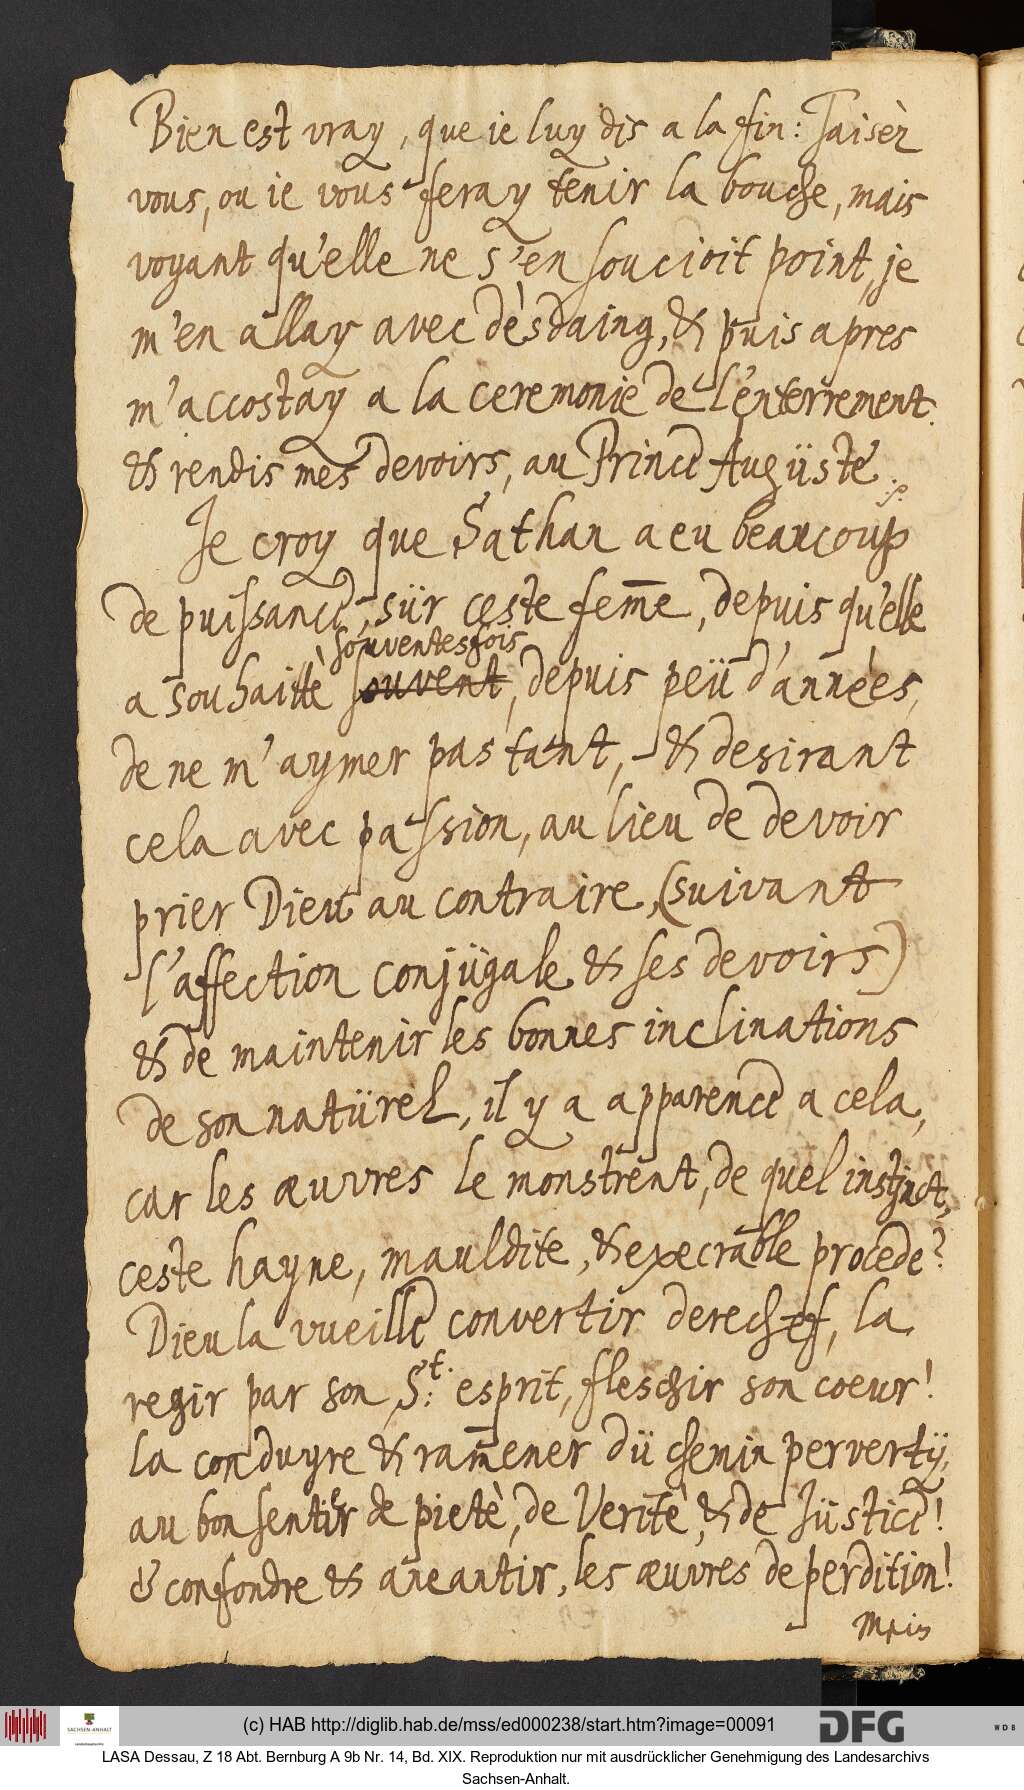 Bien est vray, que ie luy dis a la fin: Taisèz
vous, ou ie vous feray tenir la bouche, mais
voyant qu'elle ne s'en soucioit point, je
m'en allay avec dèsdaing, & puis apres
m'accostay a la ceremonie de l'enterrement.
& rendis mes devoirs, au Prince Augüste.
Je croy que Sathan a eu beaucoup
de puissance, sür ceste fem̅e, depuis qu'elle
souventesfois
a souhaittè souvent, depuis peü d'annèes,
de ne m'aymer pas tant, & desirant
cela avec passion, au lieu de devoir
prier Dieu au contraire, (suivant
l'affection conjügale & ses devoirs)
& de maintenir les bonnes inclinations
de son natürel, il y a apparence a cela,
car les œuvres le monstrent, de quel instinct,
ceste hayne, mauldite, & execrable procede?
Dieu la vueille convertir derechef, la
regir par son St: esprit, fleschir son coeur!
la conduyre & ram̅ener dü chemin pervertÿ,
au bon sentier de pietè, de Veritè, & de Jüstice!
& confondre & aneantir, les œuvres de perdition!
Mais
(c) HAB http://diglib.hab.de/mss/ed000238/start.htm?image=00091
SACHSEN-ANHALT
DFG
WDB
LASA Dessau, Z 18 Abt. Bernburg A 9b Nr. 14, Bd. XIX. Reproduktion nur mit ausdrücklicher Genehmigung des Landesarchivs
Sachsen-Anhalt.